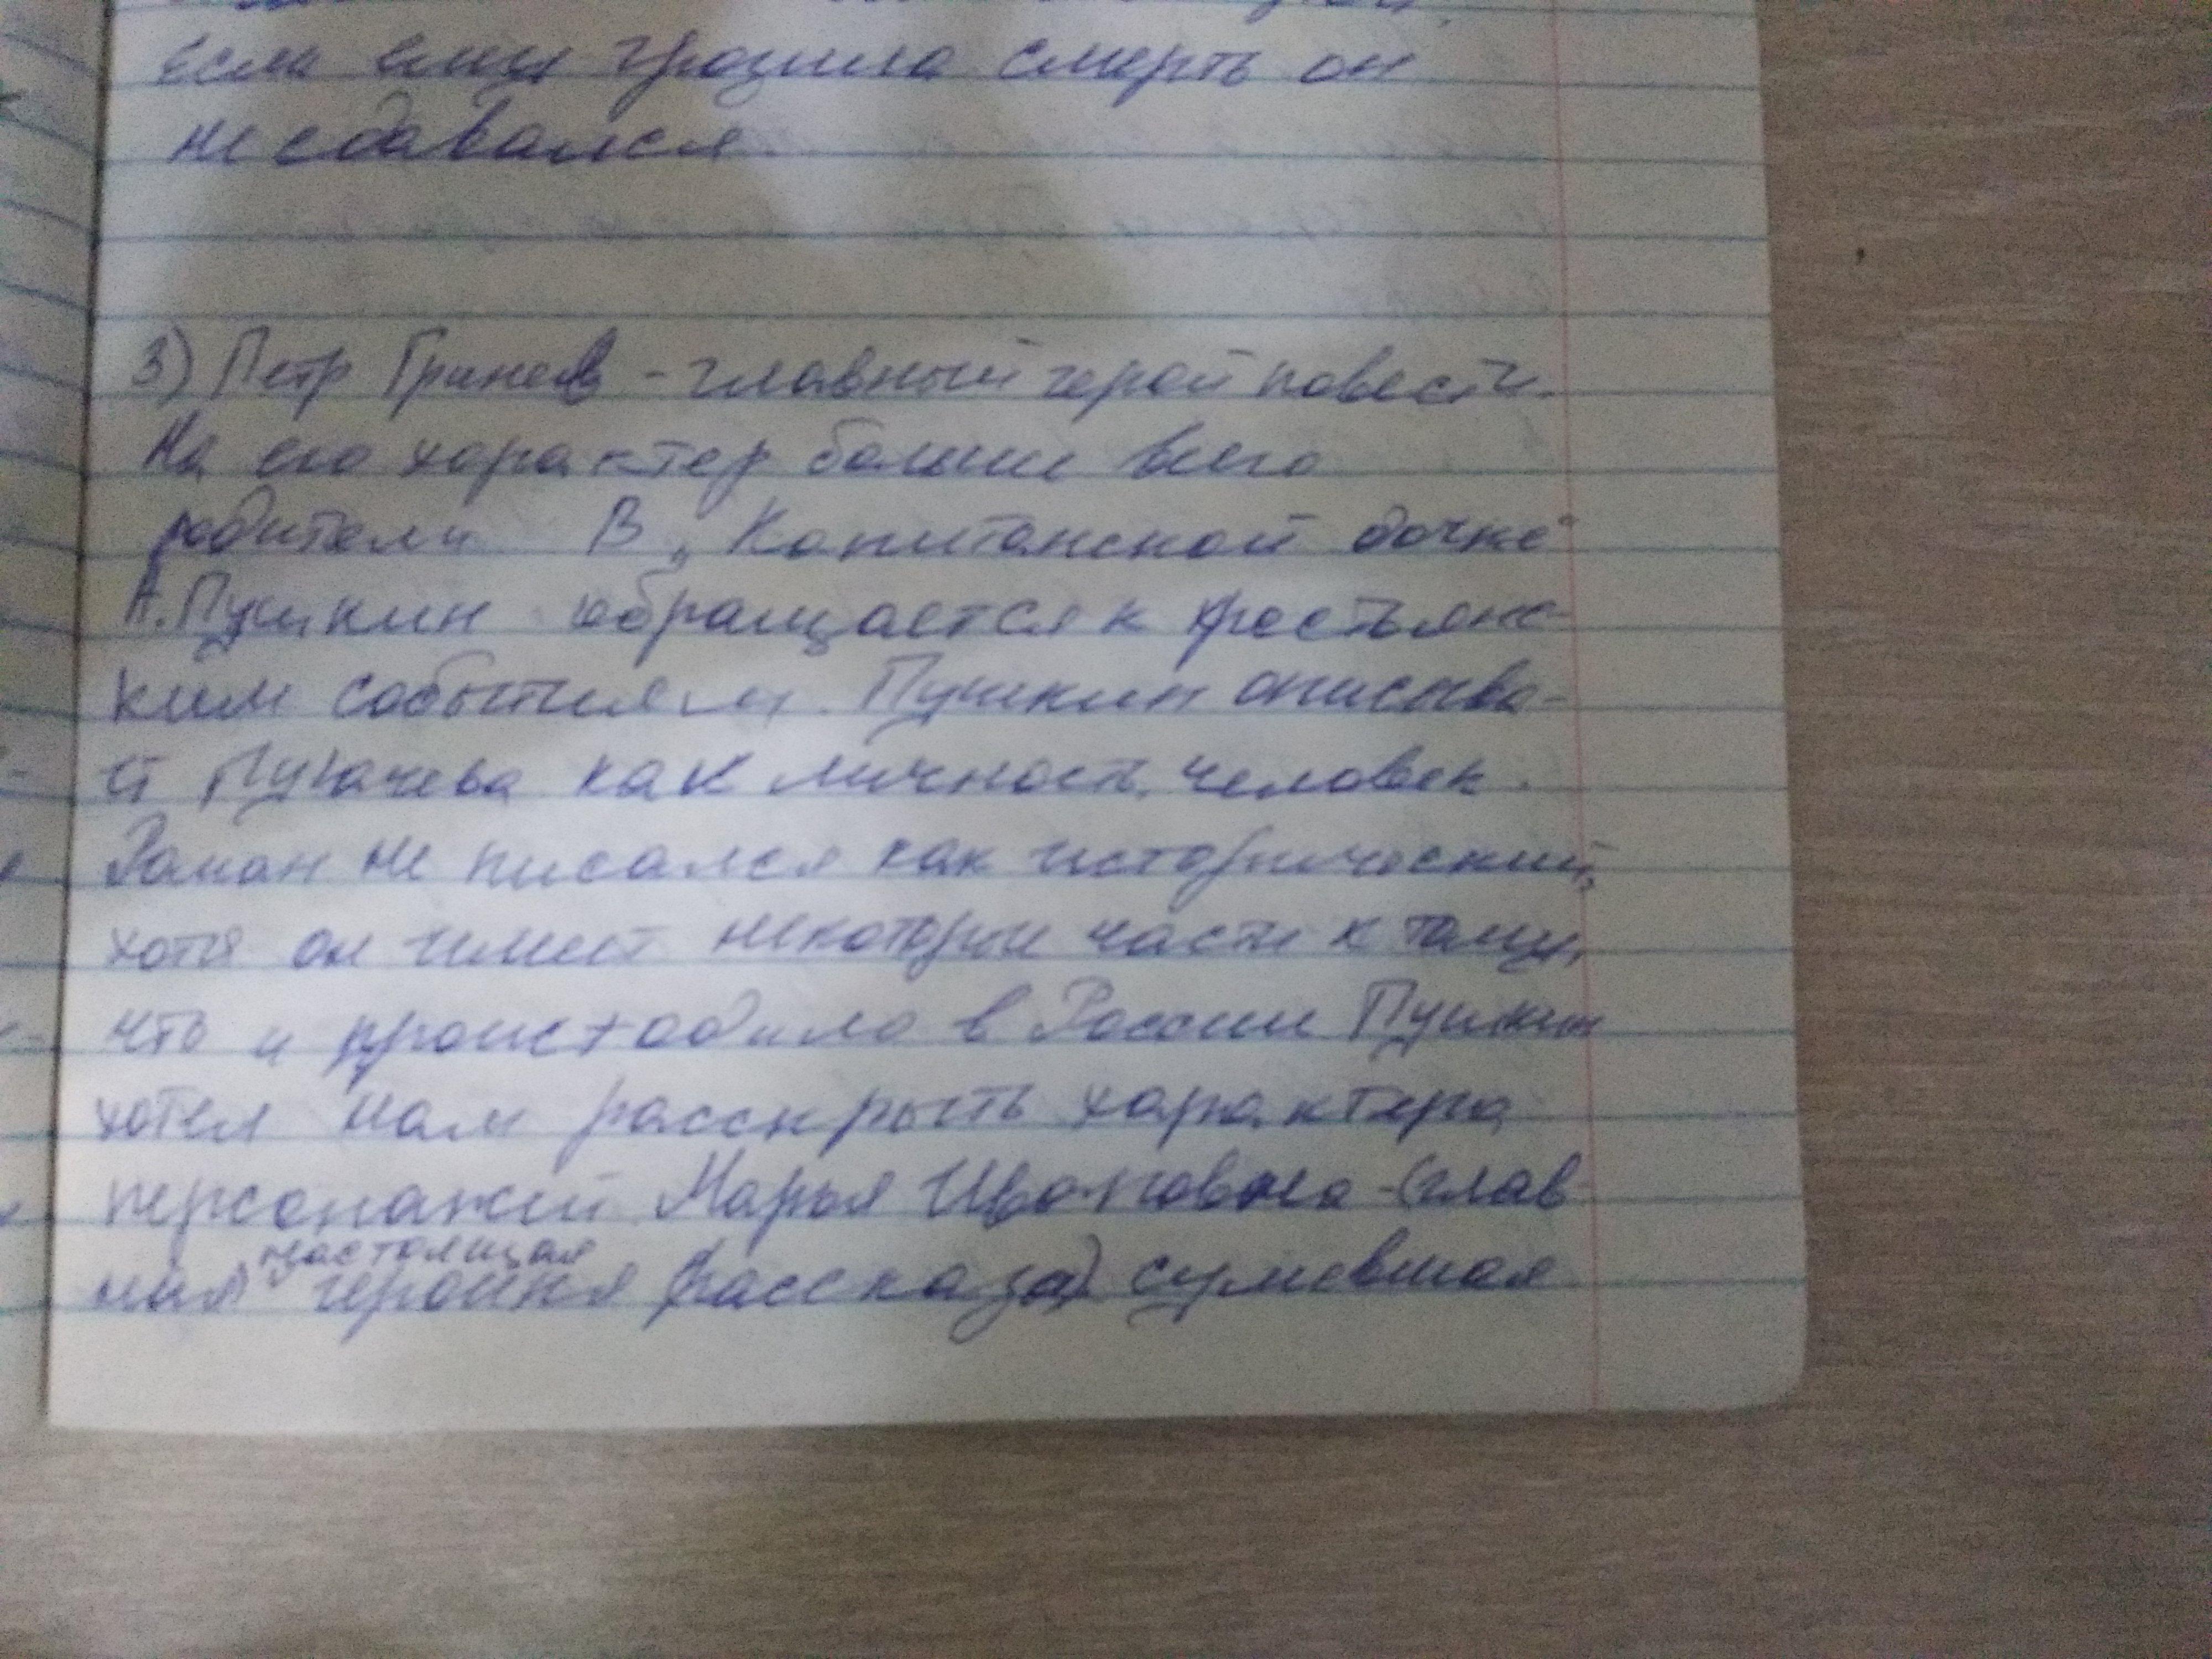 если ему грозила смерть он
не сдавался
3) Петр Гринев - главный герой повести.
На его характер больше всего
родители В „Капитанской дочке"
А.Пушкин обращается к крестьянс-
ким событиям. Пушкин описыва-
ет Пугачева как личность, человек.
Роман не писался как исторический,
хотя он имеет некоторые части к тому,
что и происходило в России Пушкин
хотел нам расскрыть характера
персонажей Марья Ивановна - (глав-
ная настоящая героиня рассказа) сумевшая